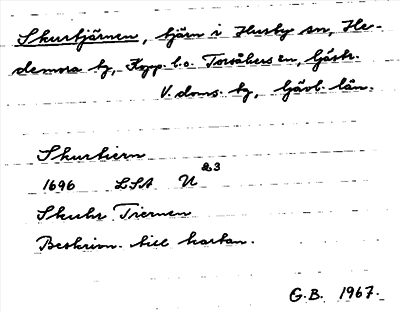 Skurtjärnen, tjärn i Husby sn, He-
demora tg, Kopp. l. o. Torsåkers sn, Gästr.
V. doms. tg, Gävl. län.
Skurtiern
1696 LSA U 23
Skuhr Tiernen
Beskrivn. till kartan.
G.B. 1967.